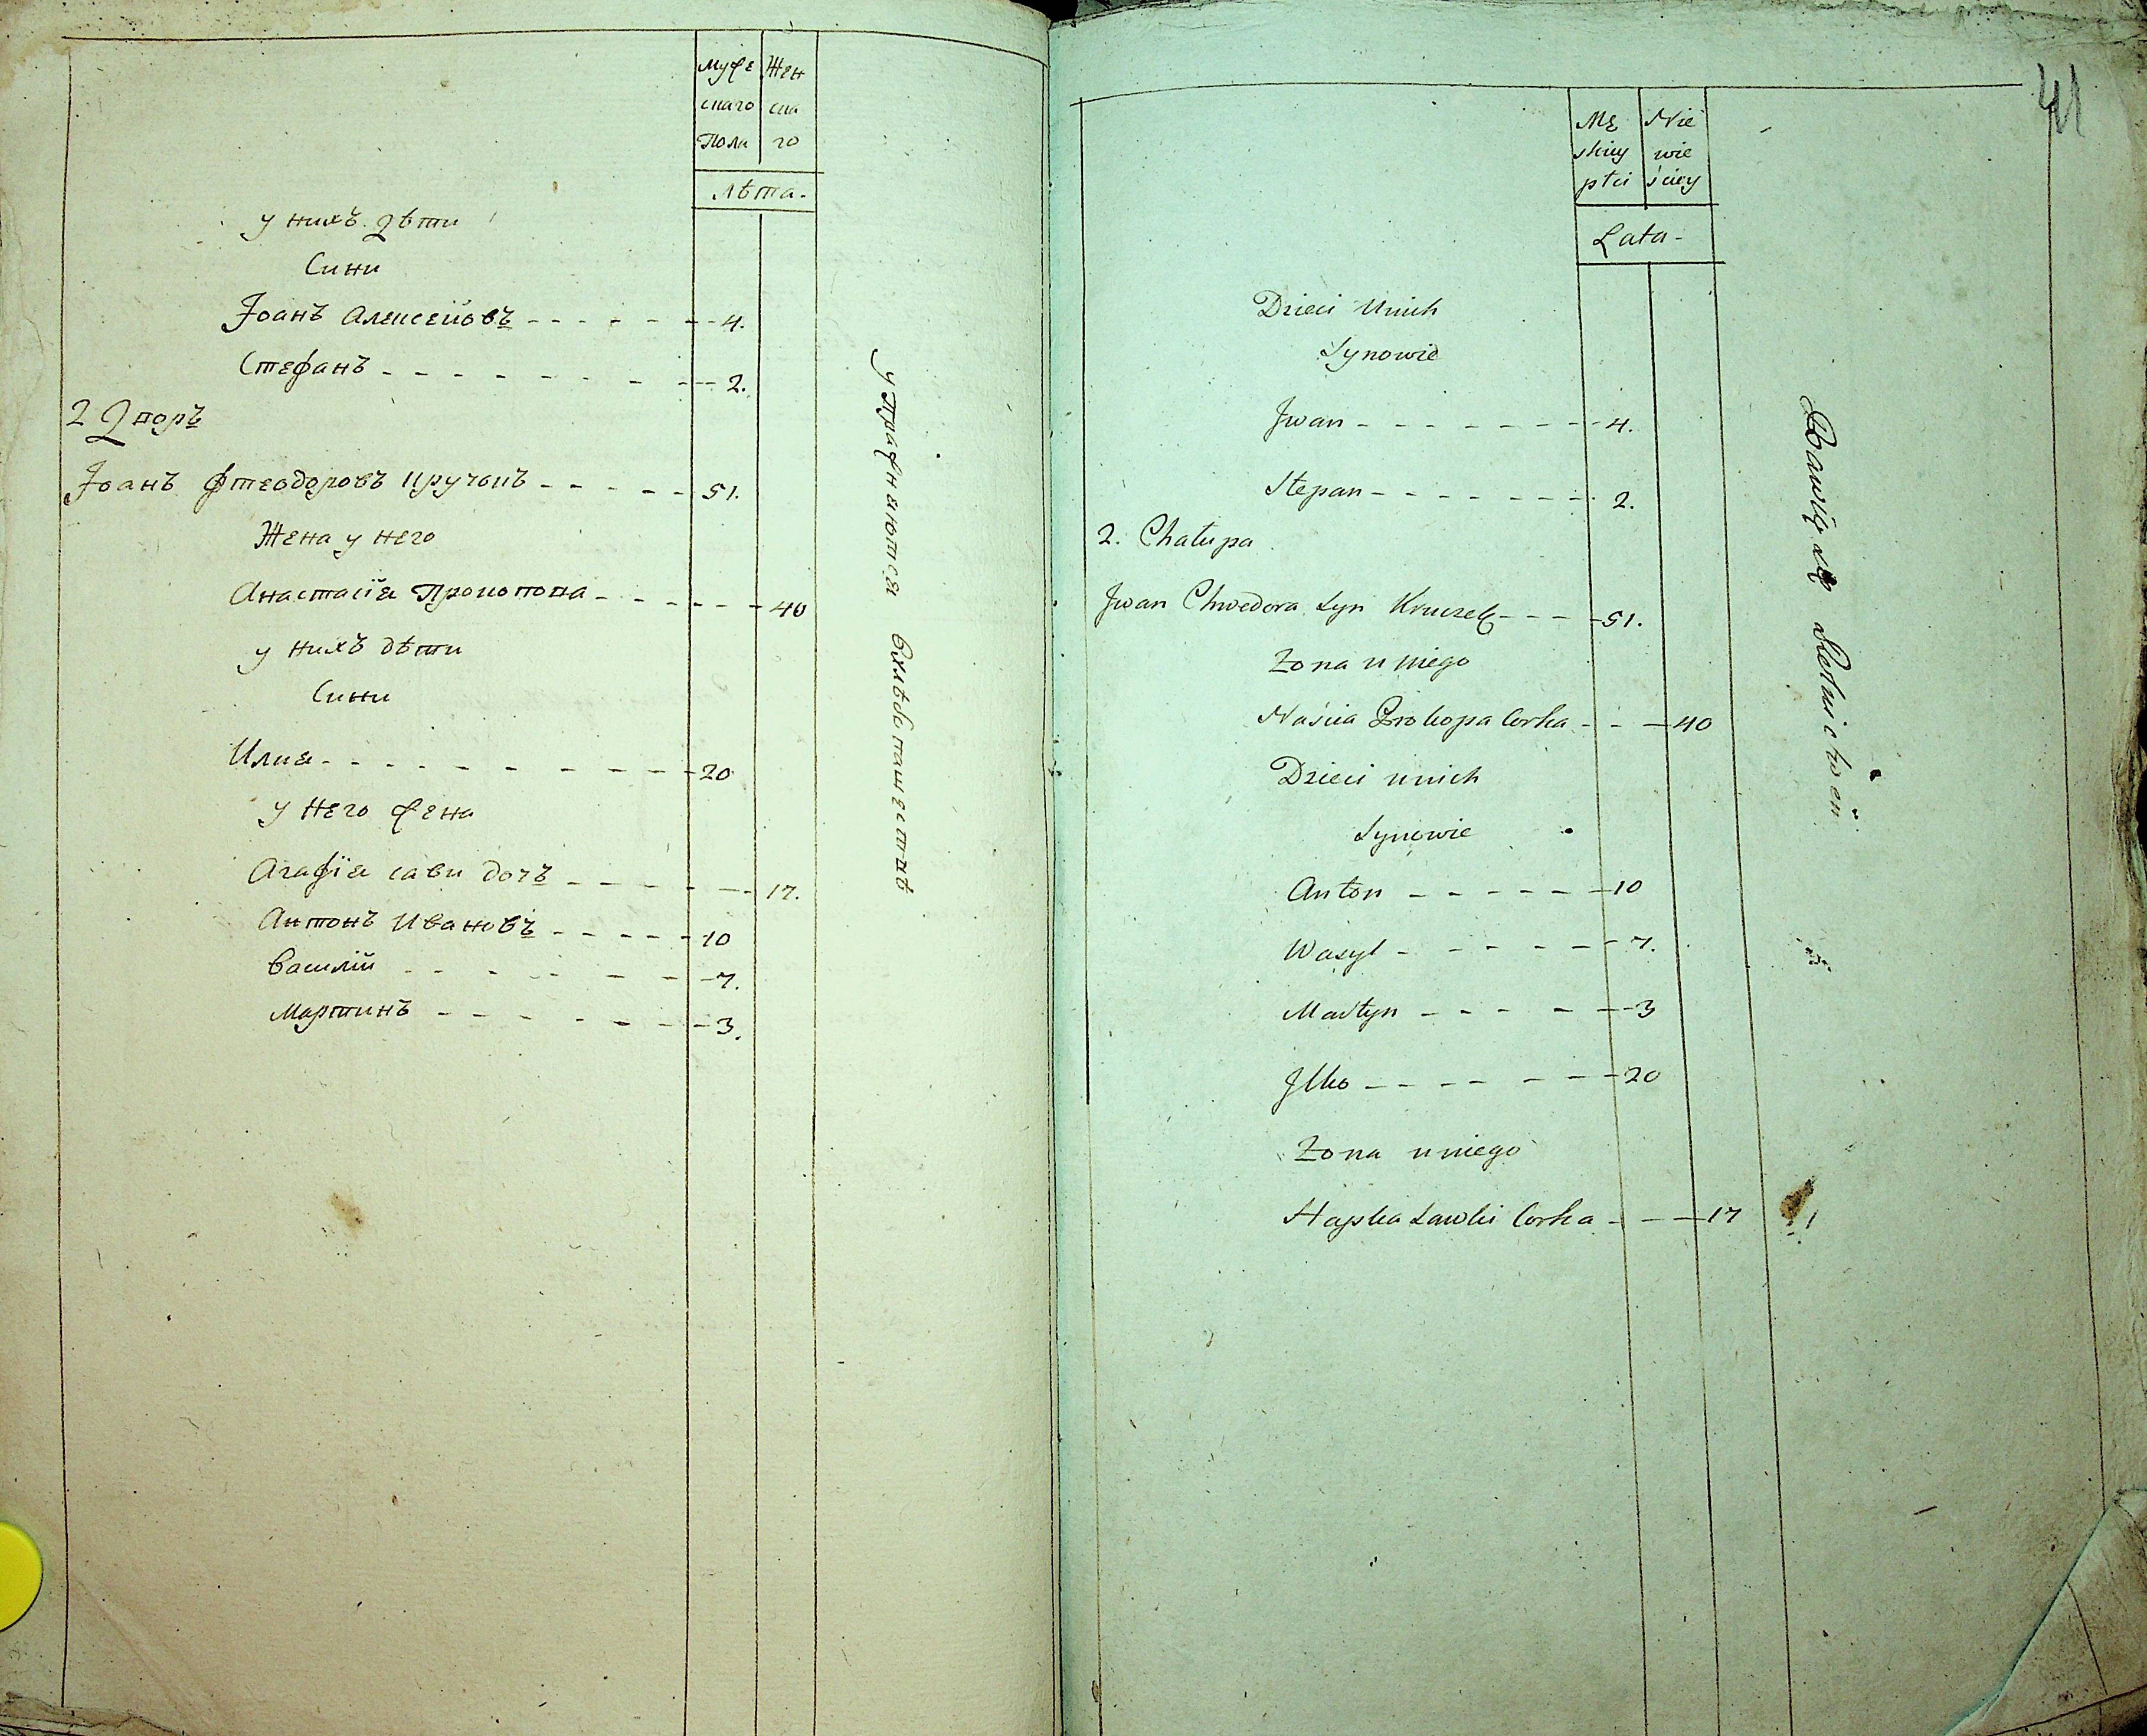 Муже Жен
скаго ска
Пола го
Лѣта.
у нихъ дѣти
Сини
Іоанъ Алексеійовъ - - - - - - 4.
Стефанъ - - - - - - - - 2.
2 Дворъ
Іоанъ Фтеодоровъ Кручокъ - - - - - 51.
Жена у него
Анастасія Прокопова - - - - - 40
у нихъ дѣти
Сини
Илия - - - - - - - - - 20
у него жена
Агафія Сави дочъ - - - - - - 17.
Антонъ Ивановъ - - - - - 10
Василій - - - - - - 7.
Мартинъ - - - - - - - 3.
упражняются вхлѣбопашествѣ
41
Mę Nie
skiey wie
płci ściey
Lata -
Dzieci Unich
Synowie
Jwan - - - - - - - 4.
Stepan - - - - - - - 2.
2. Chałupa
Jwan Chwedora Syn Kruczek - - - 51.
Zona u niego
Naścia Prokopa Corka - - - 40
Dzieci unich
Synowie
Anton - - - - - - 10
Wasyl - - - - - - 7.
Martyn - - - - - 3
Jlko - - - - - - - 20
Zona uniego
Hapka Sawki Corka - - - 17
Bawią się Rolnictwem